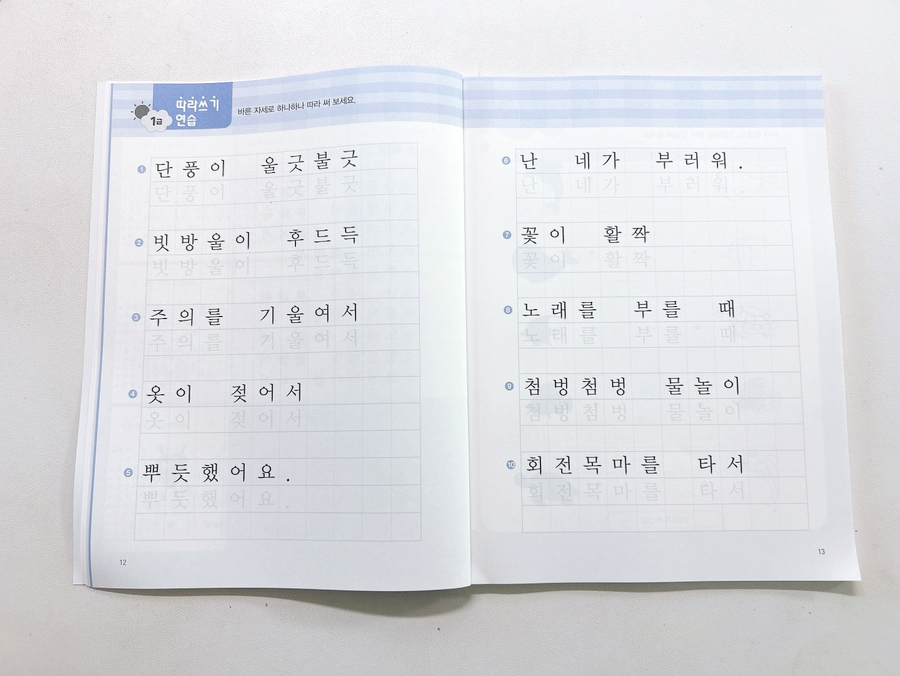 1급
따라쓰기
연습
바른 자세로 하나하나 따라 써 보세요.
1 단풍이 울긋불긋
단풍이 울긋불긋
2 빗방울이 후드득
빗방울이 후드득
3 주의를 기울여서
주의를 기울여서
4 옷이 젖어서
옷이 젖어서
5 뿌듯했어요.
뿌듯했어요.
12
6 난 네가 부러워.
난 네가 부러워.
7 꽃이 활짝
꽃이 활짝
8 노래를 부를 때
노래를 부를 때
9 첨벙첨벙 물놀이
첨벙첨벙 물놀이
10 회전목마를 타서
회전목마를 타서
13